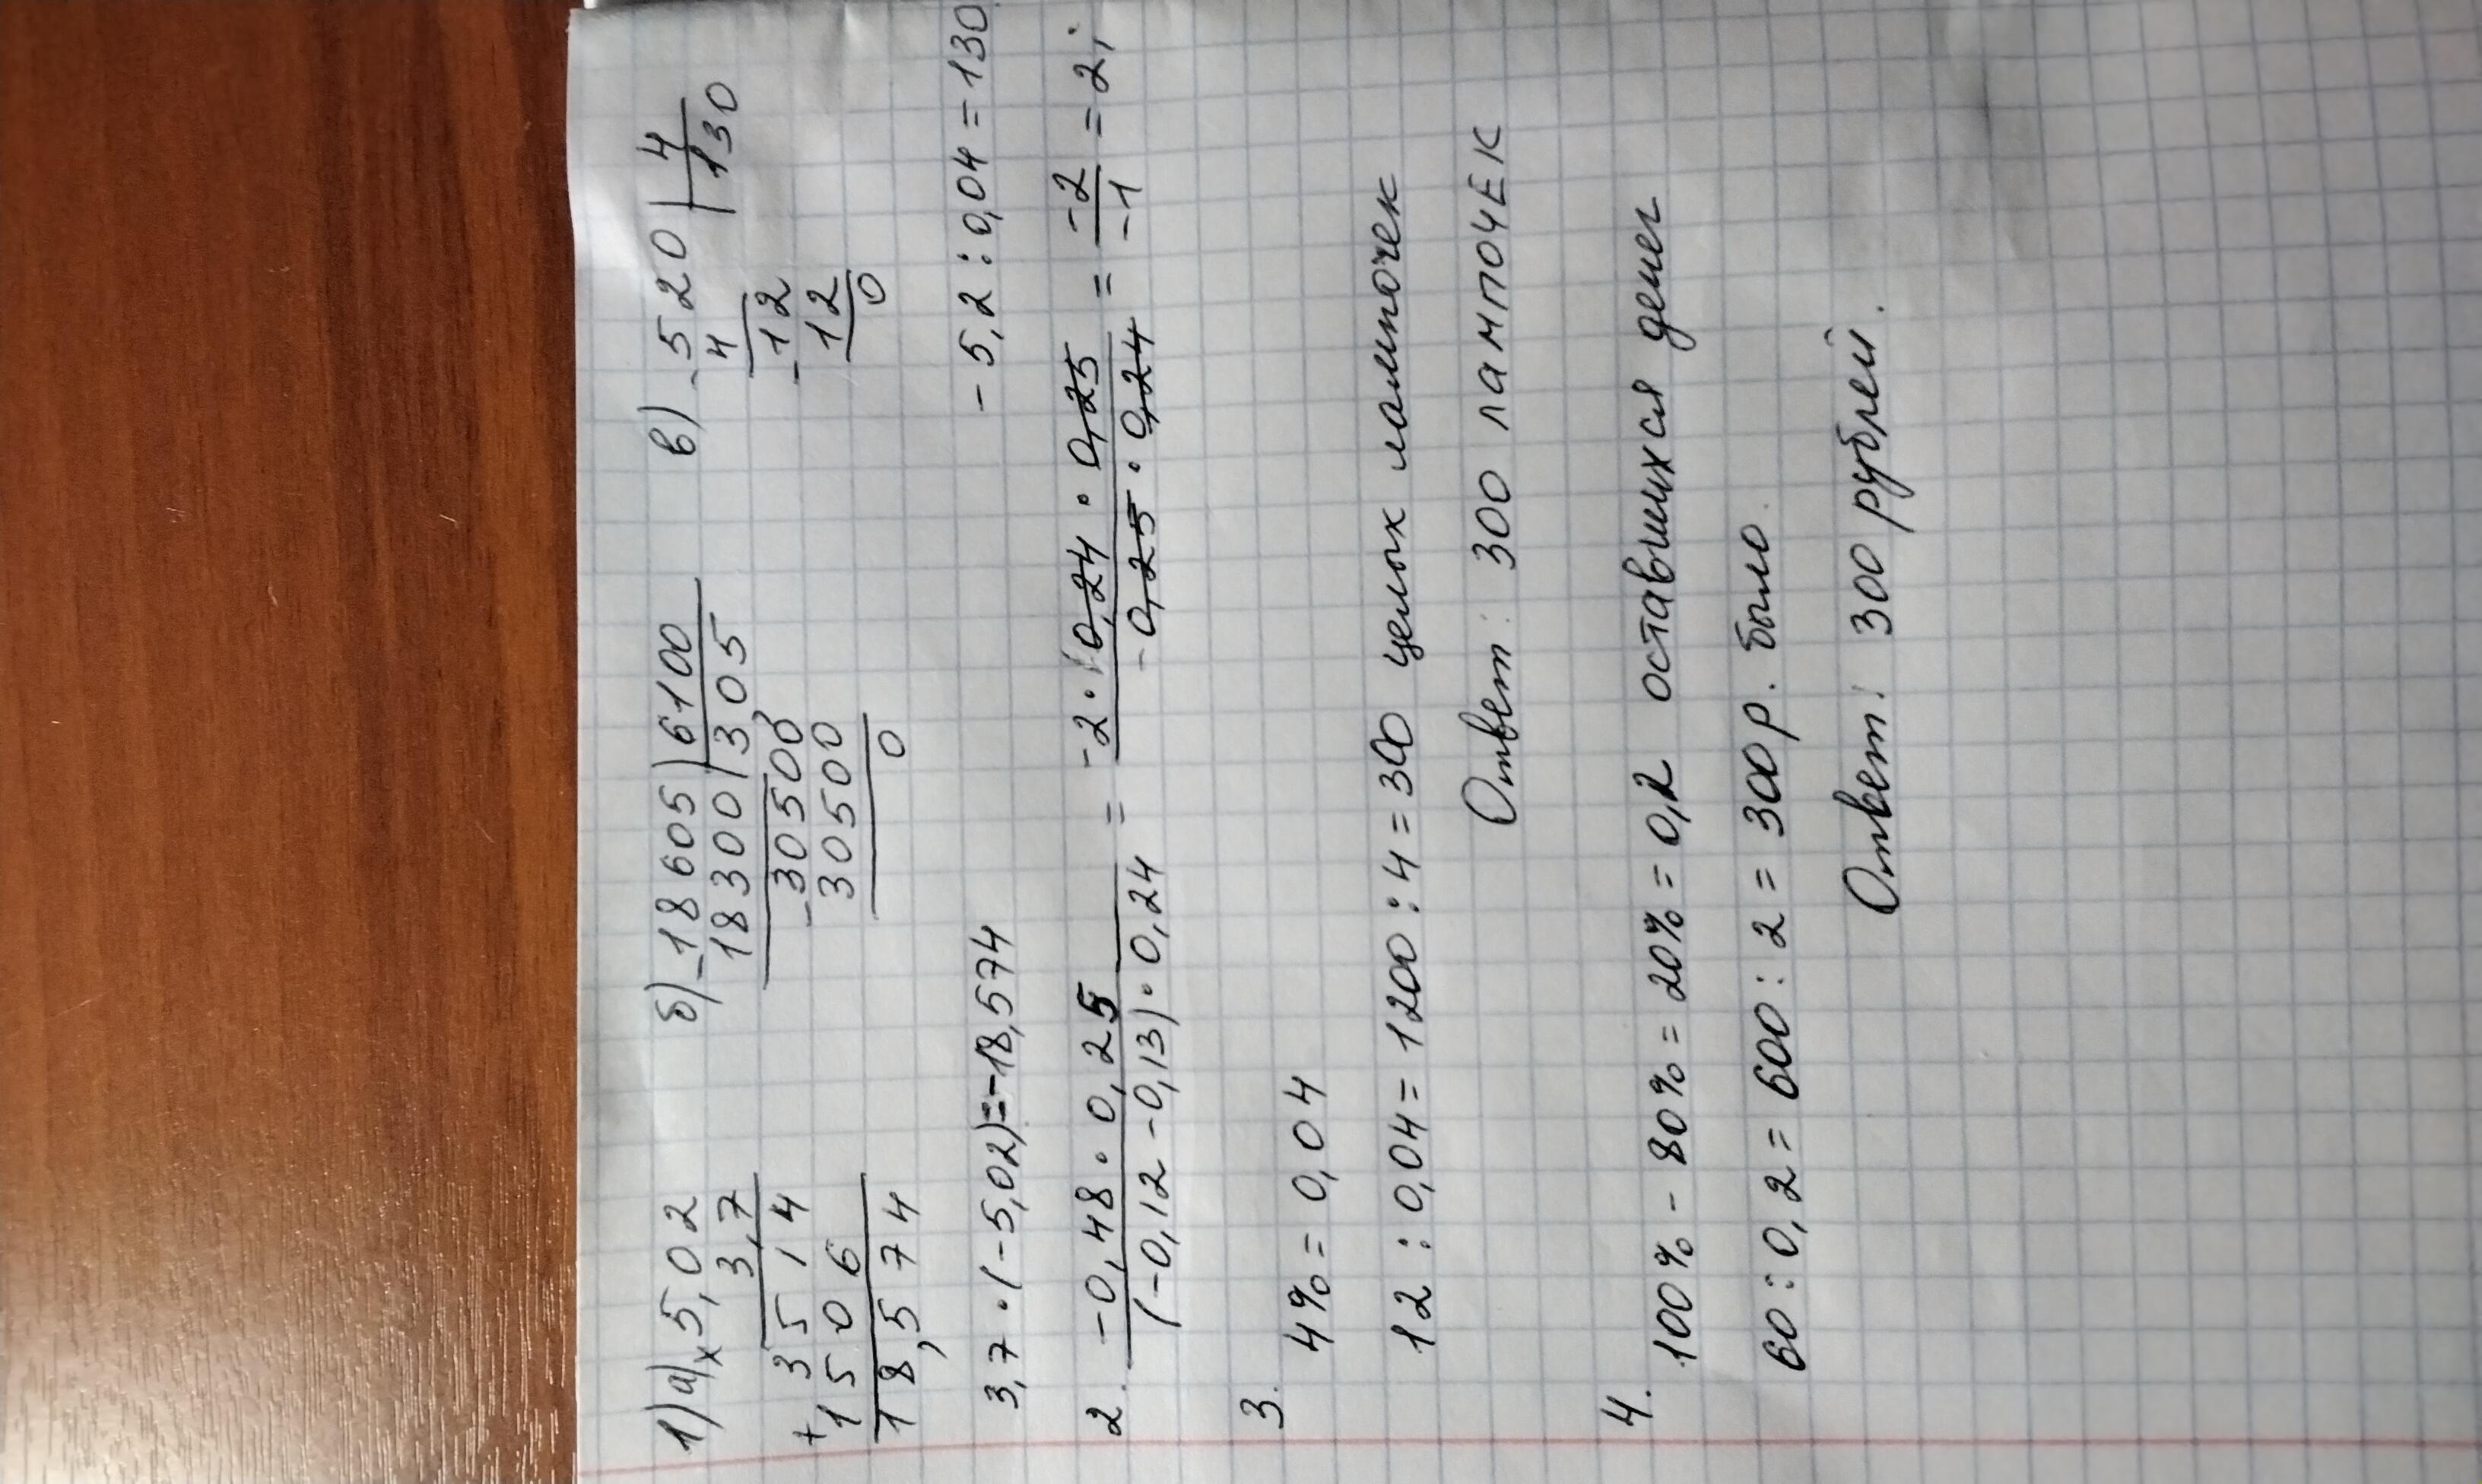 1) а) × 5,02 б) −18605 | 6100 в) −520 | 4
3,7 18300 | 305 4 130
3514 −30500 −12
+ 1506 30500 12
18,574 0 0
3,7 · (−5,02) = −18,574 −5,2 : 0,04 = 130
2. −0,48 · 0,25 / (−0,12 − 0,13) · 0,24 = −2 · 0,24 · 0,25 / −0,25 · 0,24 = −2 / −1 = 2;
3.
4% = 0,04
12 : 0,04 = 1200 : 4 = 300 целых лампочек
Ответ: 300 ЛАМПОЧЕК
4.
100% − 80% = 20% = 0,2 оставшихся денег
60 : 0,2 = 600 : 2 = 300 р. было.
Ответ: 300 рублей.